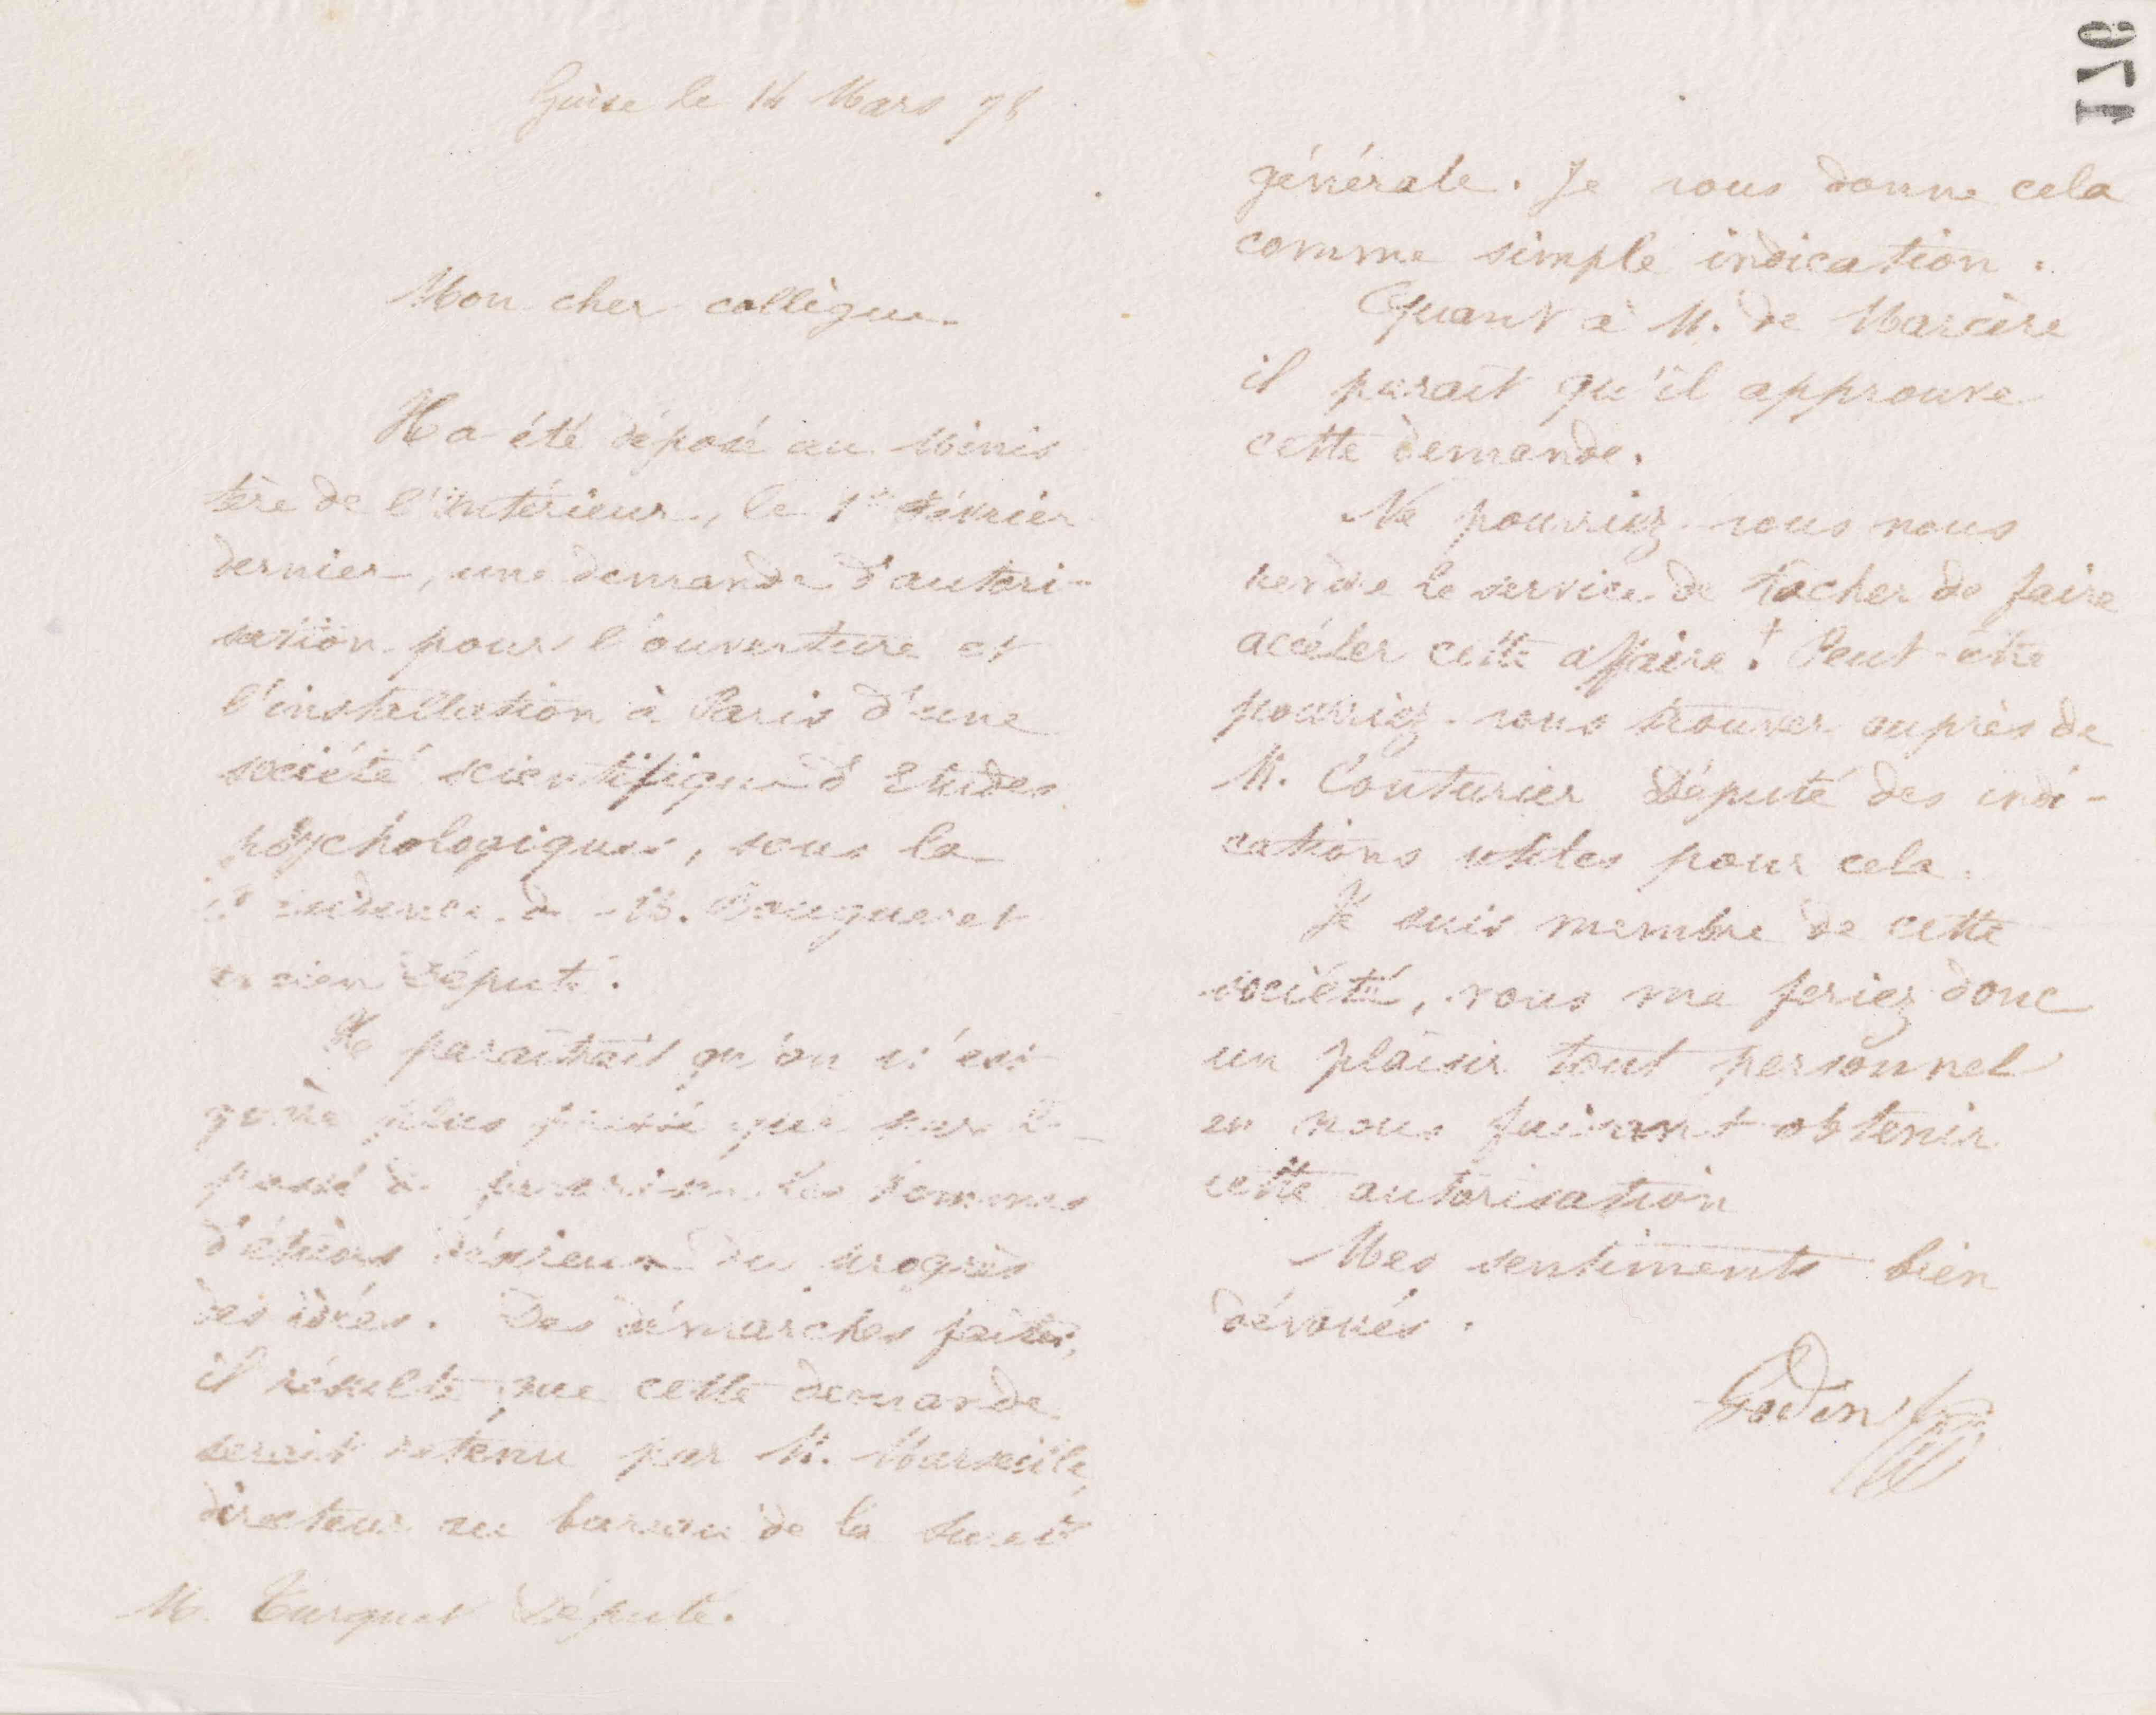 Guise le 14 Mars 78
Mon cher collègue
Il a été déposé au Minis
tère de l'intérieur, le 1er février
dernier, une demande d'autori-
sation pour l'ouverture et
l'installation à Paris d'une
société scientifique d'Etudes
psychologiques, sous la
de M.
ancien Député.
Il paraîtrait qu'on n'est
guère plus que par le
passé à les hommes
du progrès
des idées. Des démarches faites,
il résulte que cette demande
serait retenu par M. Marseille,
directeur au bureau de la sureté
M. Turquet Député.
176
générale. Je vous donne cela
comme simple indication.
Quant à M. de Marcère
il parait qu'il approuve
cette demande.
Ne pourriez-vous nous
rendre le service de tacher de faire
accéler cette affaire ? Peut-être
pourriez-vous trouver auprès de
M. Couturier Député des indi-
cations utiles pour cela.
Je suis membre de cette
société, vous me feriez donc
un plaisir tout personnel
en nous faisant obtenir
cette autorisation
Mes sentiments bien
dévoués.
Godin